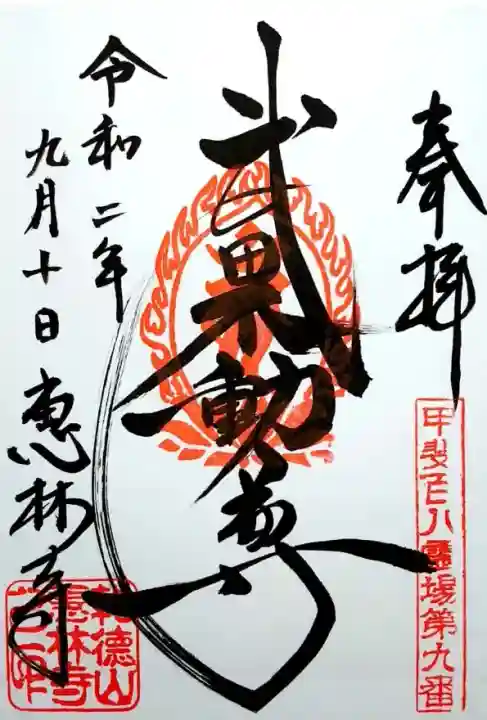 奉拝
甲斐百八霊場第九番
武田不動尊
令和二年
九月十日
恵林寺
乾徳山
恵林寺